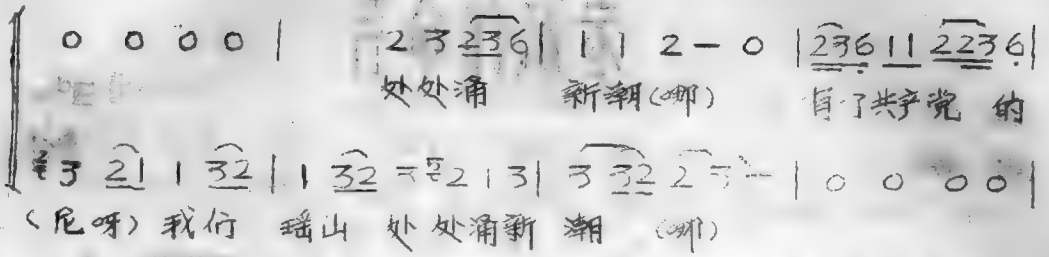 0 0 0 0 | 2 3 236 | 1 1 2 - 0 | 236 11 223 6 |
处处涌 新潮(哪) 有了共产党 的
3 21 1 32 | 1 32 2 1 3 | 3 32 2 3 - | 0 0 0 0 |
(尼呀) 我们 瑶山 处处涌新 潮 (哪)